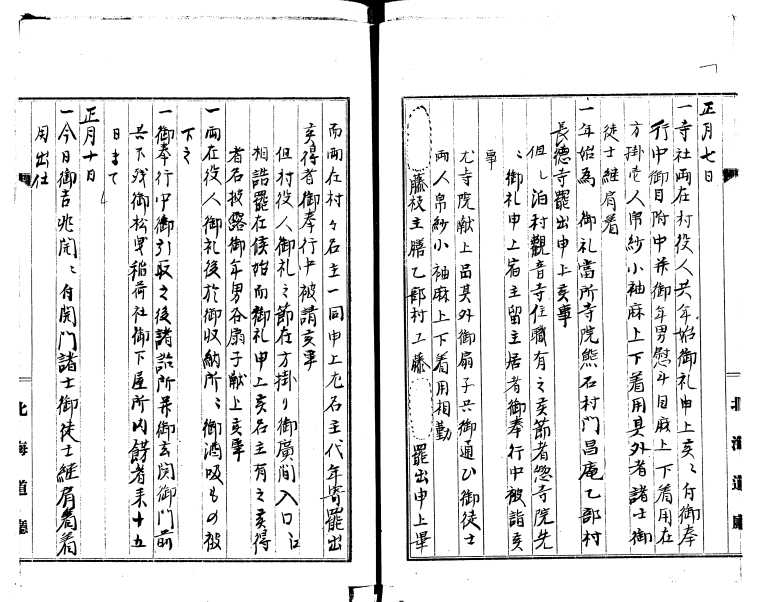 正月七日
一寺社両在村役人共年始御礼申上亥ニ付御奉
行中御目附中并御年男慰斗目麻上下着用在
方掛壱人帛紗小袖麻上下着用其外者諸士御
徒士継肩着
一年始為御礼當所寺院熊石村門昌庵乙部村
長徳寺罷出申上亥事
但し泊村觀音寺住職有之亥節者惣寺院先
ニ御礼申上宿主留主居者御奉行中被詣亥
事
尤寺院献上品其外御扇子共御通ひ御徒士
両人帛紗小袖麻上下着用相勤
藤枝主膳乙部村工藤 罷出申上畢
北海道廳
而両在村々名主一同申上尤名主代年寄罷出
亥得者御奉行中被請亥事
但村役人御礼之節在方掛り御廣間入口江
相詰罷在候始而御礼申上亥名主有之亥得
者名披露御年男谷扇子献上亥事
一両在役人御礼後於御収納所ニ御酒吸もの被
下之
一御奉行中御引取之後諸詰所并御玄関御門前
共下残御松曳稲荷社御下屋所内餝者来十五
日まて
正月十日
一今日御吉兆開ニ付関門諸士御徒士継肩着着
用出仕
北海道廳